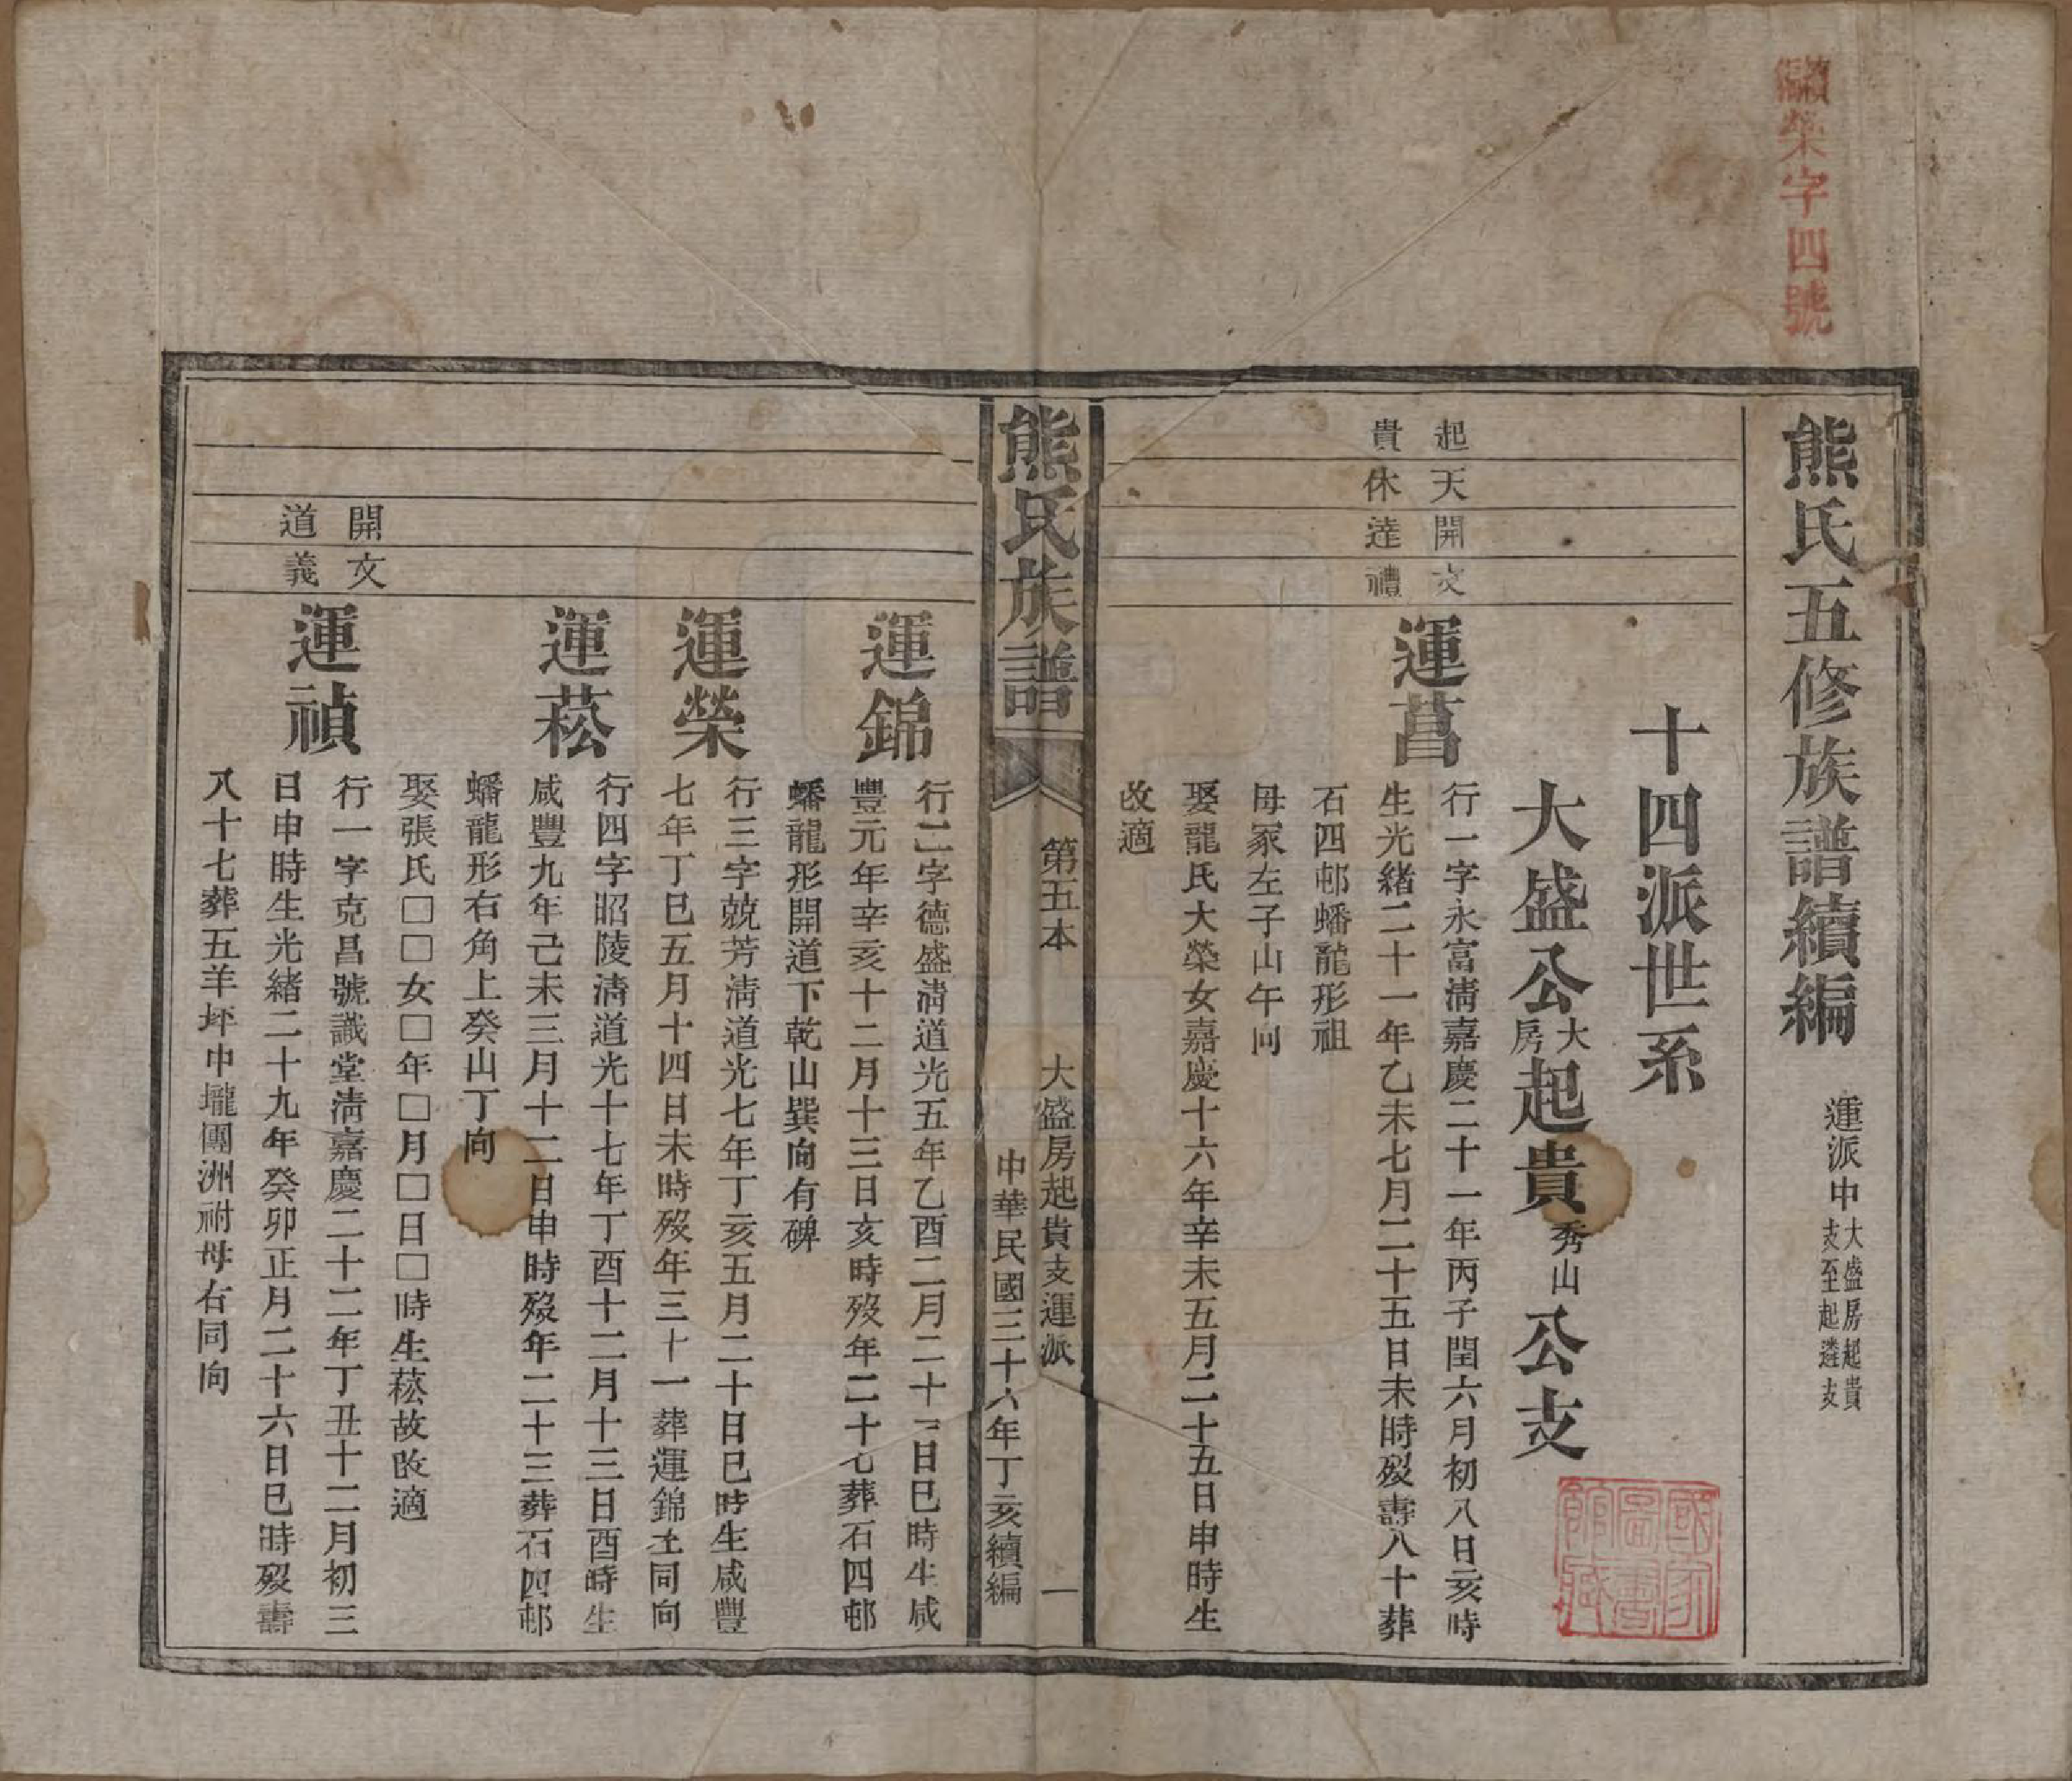 續編榮字四號
熊氏五修族譜續編
運派中大盛房起貴
支至起遴支
十四派世系
大盛公大房起貴秀山公支
起天開文
貴休達禮
運菖
行一字永富清嘉慶二十一年丙子閏六月初八日亥時
生光緒二十一年乙未七月二十五日未時歿壽八十葬
石四邨蟠龍形祖
母冢左子山午向
娶龍氏大榮女嘉慶十六年辛未五月二十五日申時生
改適
國家圖書館藏
熊氏族譜
第五本
大盛房起貴支運派
一
中華民國三十六年丁亥續編
運錦
行二字德盛清道光五年乙酉二月二十一日巳時生咸
豐元年辛亥十二月十三日亥時歿年二十七葬石四邨
蟠龍形開道下乾山巽向有碑
運榮
行三字兢芳清道光七年丁亥五月二十日巳時生咸豐
七年丁巳五月十四日未時歿年三十一葬運錦左同向
運菘
行四字昭陵清道光十七年丁酉十二月十三日酉時生
咸豐九年己未三月十二日申時歿年二十三葬石四邨
蟠龍形右角上癸山丁向
娶張氏□□女□年□月□日□時生菘故改適
開文
道義
運禎
行一字克昌號識堂清嘉慶二十二年丁丑十二月初三
日申時生光緒二十九年癸卯正月二十六日巳時歿壽
八十七葬五羊坪中壠團洲祔母右同向